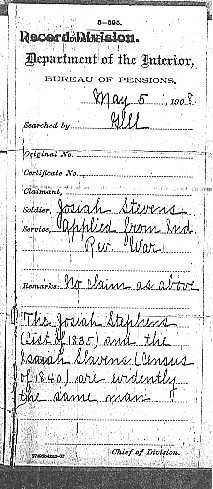 3—595.
Record Division.
Department of the Interior,
BUREAU OF PENSIONS,
May 5, 1908.
Searched by Gill
Original No.
Certificate No.
Claimant,
Soldier, Josiah Stevens
Service, Applied from Ind.
Rev. War
Remarks: No claim as above
The Josiah Stephens
(List of 1835) and the
Isaiah Stevens (Census
of 1840) are evidently
the same man
Chief of Division.